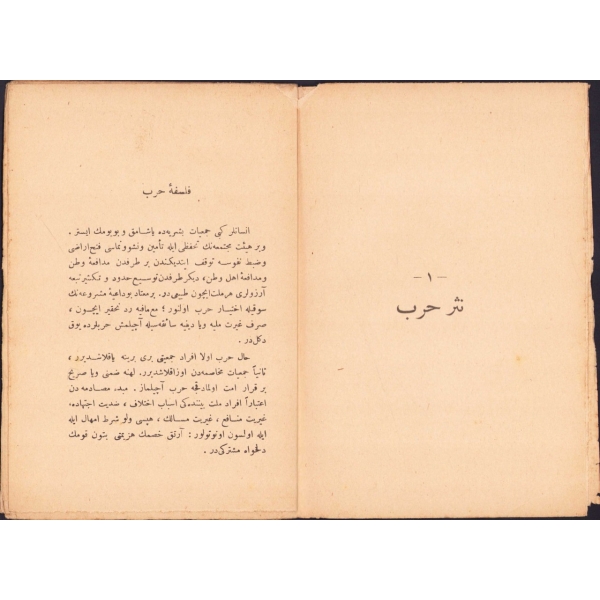 - ١ -
نثر حرب
فلسفهٔ حرب
انسانلر كبی جمعیات بشریه‌ده یاشامق و بویومك ایستر .
و بر هیئت مجتمعه‌نك تحفظی ایله تأمین و نشوونماسی فتح اراضی
و ضبط نفوسه توقف ایتدیكندن بر طرفدن مدافعهٔ وطن
و مدافعهٔ اهل وطن ، دیكر طرفدن توسیع حدود و تكثیر تبعه
آرزولری هر ملت ایچون طبیعی‌در . بر معتاد بو داهیهٔ مشروعه‌نك
سوقیله اختیار حرب اولنور ؛ مع‌مافیه رد تحقیر ایچون ،
صرف غیرت ملیه ویا دینیه سائقه‌سیله آچیلمش حربلرده یوق
دكل‌در .
حال حرب اولا افراد جمعیتی بری برینه یاقلاشدیرر ،
ثانیاً جمعیات مخاصمه‌دن اوزاقلاشدیرر .  ضمنی ویا صریح
بر قرار امت اولمادقجه حرب آچیلماز . مبدء مصادمه‌دن
اعتباراً افراد ملت بیننده‌كی اسباب اختلاف ، ضدیت اجتهاد ،
غیریت منافع ، غیریت مسالك ، هپسی ولو شرط امهال ایله
ایله اولسون اونوتولور : آرتق خصمك هزیمتی بتون قومك
دلخواه مشتركی‌در .